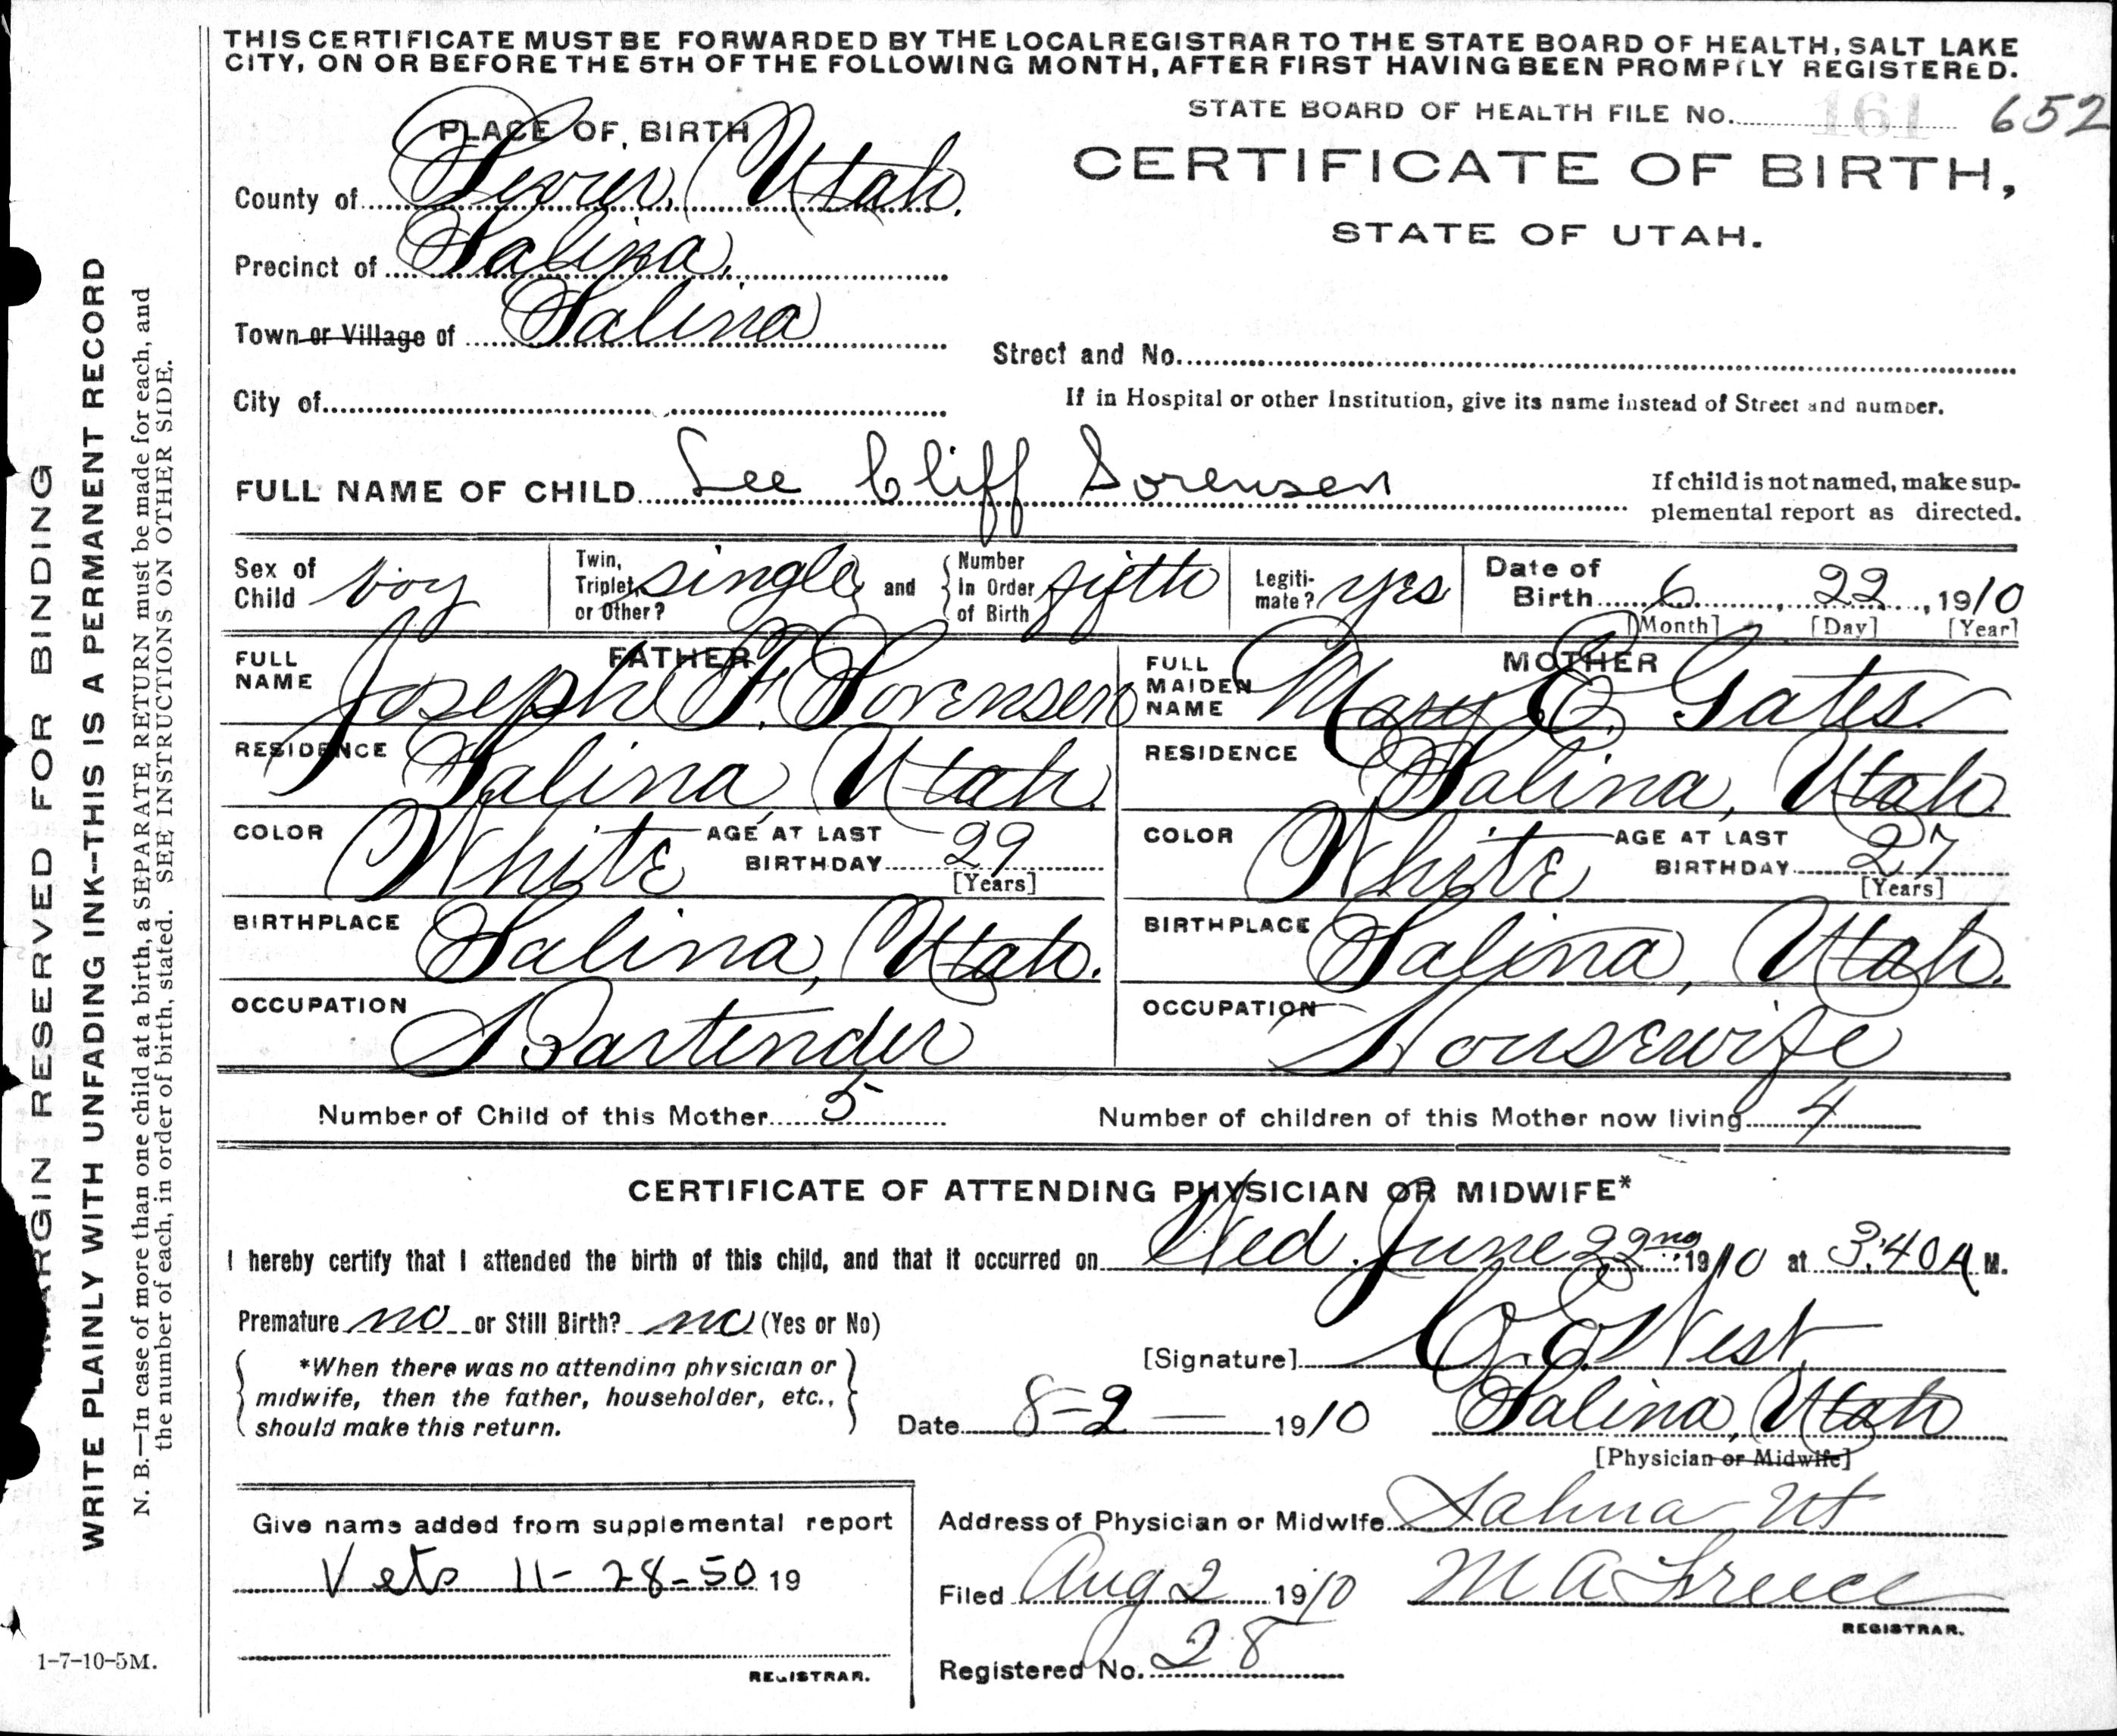 THIS CERTIFICATE MUST BE FORWARDED BY THE LOCAL REGISTRAR TO THE STATE BOARD OF HEALTH, SALT LAKE
CITY, ON OR BEFORE THE 5TH OF THE FOLLOWING MONTH, AFTER FIRST HAVING BEEN PROMPTLY REGISTERED.
STATE BOARD OF HEALTH FILE No. 161 652
PLACE OF BIRTH
CERTIFICATE OF BIRTH,
STATE OF UTAH.
County of Sevier, Utah.
Precinct of Salina.
Town or Village of Salina
Street and No.
City of
If in Hospital or other Institution, give its name instead of Street and number.
FULL NAME OF CHILD Lee Cliff Sorensen
If child is not named, make sup-
plemental report as directed.
Sex of Child boy
Twin, Triplet, or Other? single and Number In Order of Birth fifth
Legiti-mate? yes
Date of Birth 6, 22, 1910
[Month] [Day] [Year]
FATHER
FULL NAME Joseph F. Sorensen
RESIDENCE Salina, Utah.
COLOR White AGE AT LAST BIRTHDAY 29
[Years]
BIRTHPLACE Salina, Utah.
OCCUPATION Bartender
MOTHER
FULL MAIDEN NAME Mary E. Gates
RESIDENCE Salina, Utah.
COLOR White AGE AT LAST BIRTHDAY 27
[Years]
BIRTHPLACE Salina, Utah.
OCCUPATION Housewife
Number of Child of this Mother 5 Number of children of this Mother now living 4
CERTIFICATE OF ATTENDING PHYSICIAN OR MIDWIFE*
I hereby certify that I attended the birth of this child, and that it occurred on Wed. June 22nd 1910 at 3:40 A M.
Premature no or Still Birth? no (Yes or No)
*When there was no attending physician or
midwife, then the father, householder, etc.,
should make this return.
[Signature] C. E. West,
Date 8-2 — 1910 Salina, Utah
[Physician or Midwife]
Give name added from supplemental report
Vets 11-28-50 19
REGISTRAR.
Address of Physician or Midwife Salina Ut
Filed Aug 2 1910 M A Freece
REGISTRAR.
Registered No. 28
MARGIN RESERVED FOR BINDING
WRITE PLAINLY WITH UNFADING INK--THIS IS A PERMANENT RECORD
N. B.—In case of more than one child at a birth, a SEPARATE RETURN must be made for each, and
the number of each, in order of birth, stated. SEE INSTRUCTIONS ON OTHER SIDE.
1-7-10-5M.